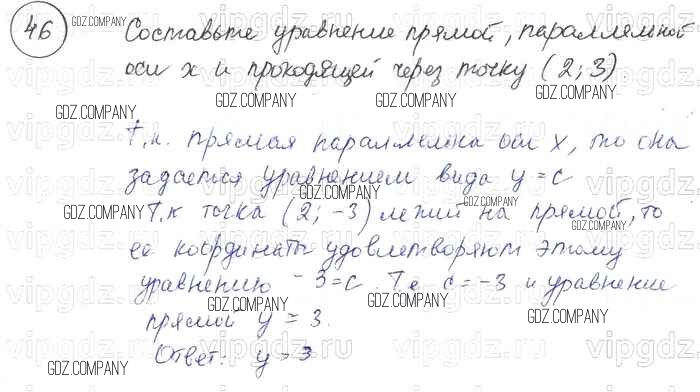 46 Составьте уравнение прямой, параллельной
оси x и проходящей через точку (2; 3).
GDZ.COMPANY GDZ.COMPANY GDZ.COMPANY
Т.к. прямая параллельна оси x, то она
задается уравнением вида y = c
GDZ.COMPANY GDZ.COMPANY GDZ.COMPANY
Т.к точка (2; -3) лежит на прямой, то
ее координаты удовлетворяют этому
уравнению -3 = c. Т.е c = -3 и уравнение
GDZ.COMPANY GDZ.COMPANY GDZ.COMPANY
прямой y = 3.
Ответ: y = 3
GDZ.COMPANY GDZ.COMPANY GDZ.COMPANY